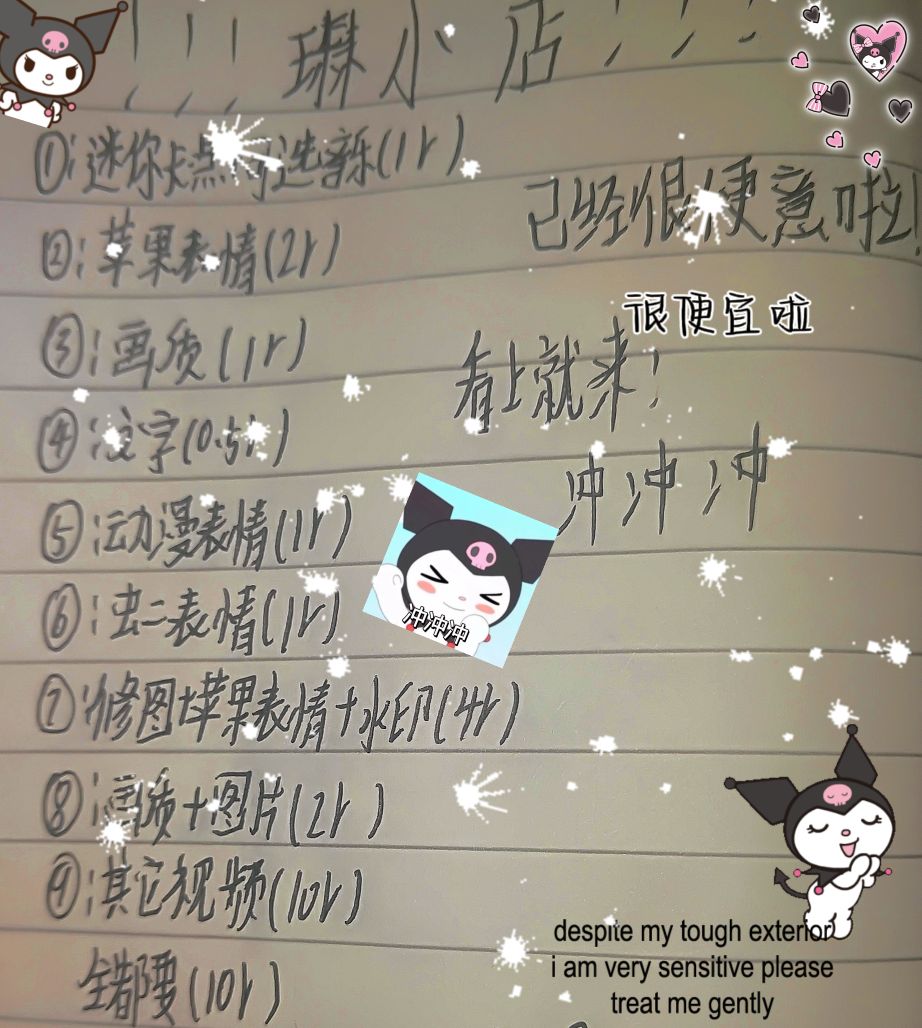 ！！！琳小店！！！
①：迷你卡点可选音乐(1r)
已经很便意啦！
②：苹果表情(2r)
很便宜啦
③：画质(1r)
看上就来！
④：文字(0.5r)
冲冲冲
⑤：动漫表情(1r)
冲冲冲
⑥：虫二表情(1r)
⑦：修图+苹果表情+水印(4r)
⑧：画质+图片(2r)
⑨：其它视频(10r)
despite my tough exterior
i am very sensitive please
treat me gently
全都要(10r)